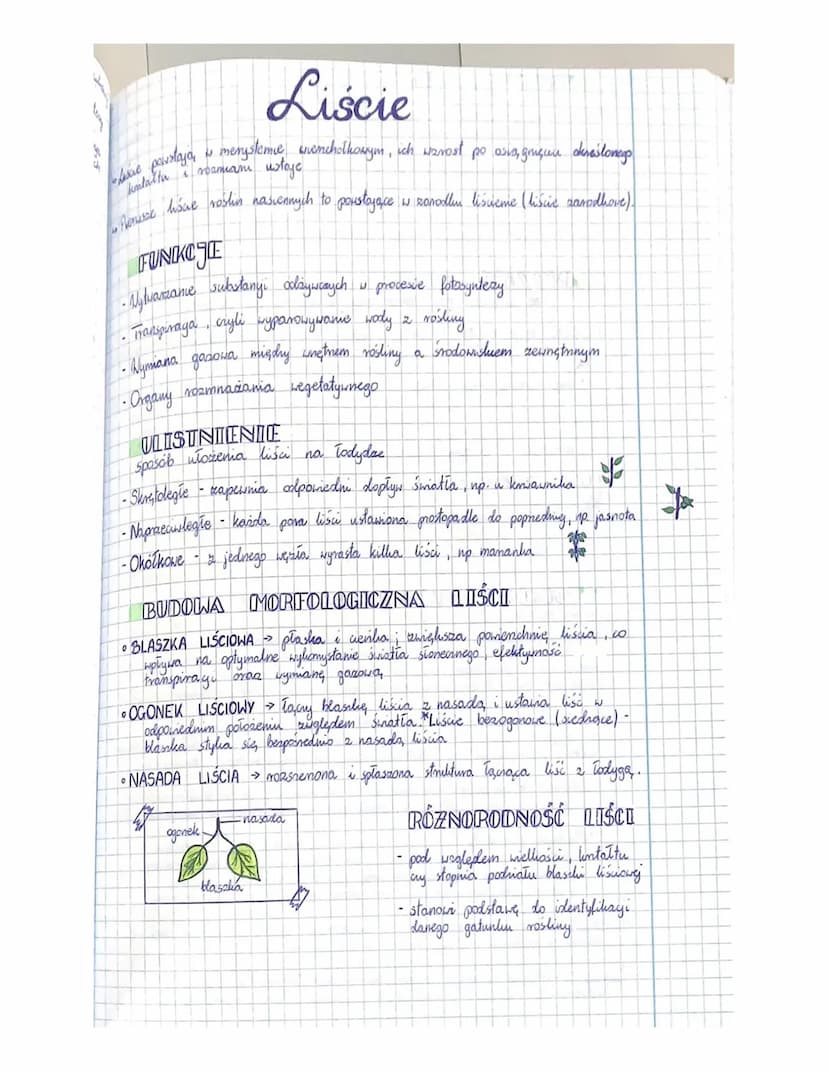 Liście
- Liście powstają w merystemie wierzchołkowym, ich wzrost po osiągnięciu określonego
kształtu i rozmiaru ustaje
- Pierwsze liście roślin nasiennych to powstające w zarodku liścienie (liście zarodkowe).
FUNKCJE
- Wytwarzanie substancji odżywczych w procesie fotosyntezy
- Transpiracja, czyli wyparowywanie wody z rośliny
- Wymiana gazowa między wnętrzem rośliny a środowiskiem zewnętrznym
- Organy rozmnażania wegetatywnego
ULISTNIENIE
sposób ułożenia liści na łodydze
- Skrętoległe - zapewnia odpowiedni dopływ światła, np. u krwawnika
- Naprzeciwległe - każda para liści ustawiona prostopadle do poprzedniej, np. jasnota
- Okółkowe - z jednego węzła wyrasta kilka liści, np. marzanka
BUDOWA MORFOLOGICZNA LIŚCI
• BLASZKA LIŚCIOWA → płaska i cienka; zwiększa powierzchnię liścia, co
wpływa na optymalne wykorzystanie światła słonecznego, efektywność
transpiracji oraz wymianę gazową
• OGONEK LIŚCIOWY → łączy blaszkę liścia z nasadą i ustawia liść w
odpowiednim położeniu względem światła. *Liście bezogonowe (siedzące) -
blaszka styka się bezpośrednio z nasadą liścia
• NASADA LIŚCIA → rozszerzona i spłaszczona struktura łącząca liść z łodygą.
nasada
ogonek
blaszka
RÓŻNORODNOŚĆ LIŚCI
- pod względem wielkości, kształtu
czy stopnia podziału blaszki liściowej
- stanowi podstawę do identyfikacji
danego gatunku rośliny